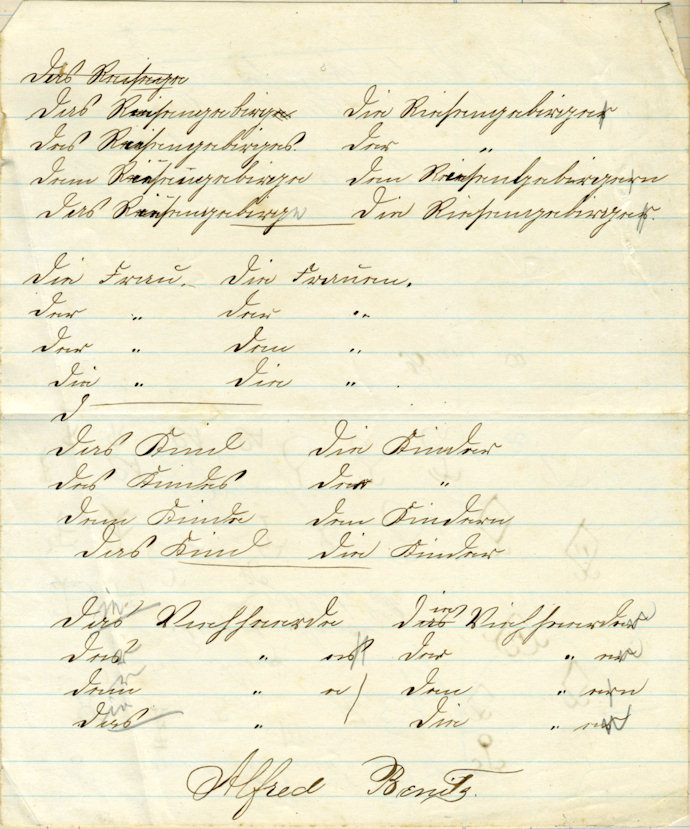 Das Riesenge
Das Riesengebirge Die Riesengebirger
des Riesengebirges. der "
dem Riesengebirge den Riesengebirgern
das Riesengebirge die Riesengebirger.
Die Frau. Die Frauen.
der " der "
der " den "
die " die " .
D
Das Kind Die Kinder
des Kindes der "
dem Kinde den Kindern
das Kind die Kinder
Das Viehheerde die Viehheerder
des " es der " er
dem " e den " ern
das " die " er
Alfred Benitz.